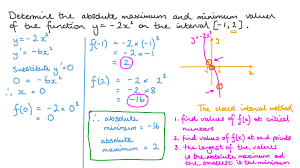 Determine the absolute maximum and minimum values
of the function y = -2x³ on the interval [-1, 2].
y = -2x³
y' = -6x²
Substitute y' = 0
0 = -6x²
∴ x = 0
f(0) = -2 × 0³
= 0
f(-1) = -2 × (-1)³
= -2 × -1
= 2
f(2) = -2 × 2³
= -2 × 8
= -16
∴ absolute
minimum = -16
absolute
maximum = 2
y = -2x³
y
x
-1
2
The closed interval method
1. find values of f(x) at critical
numbers
2. find values of f(x) at end points
3. the largest of the values
is the absolute max and
the smallest is the min